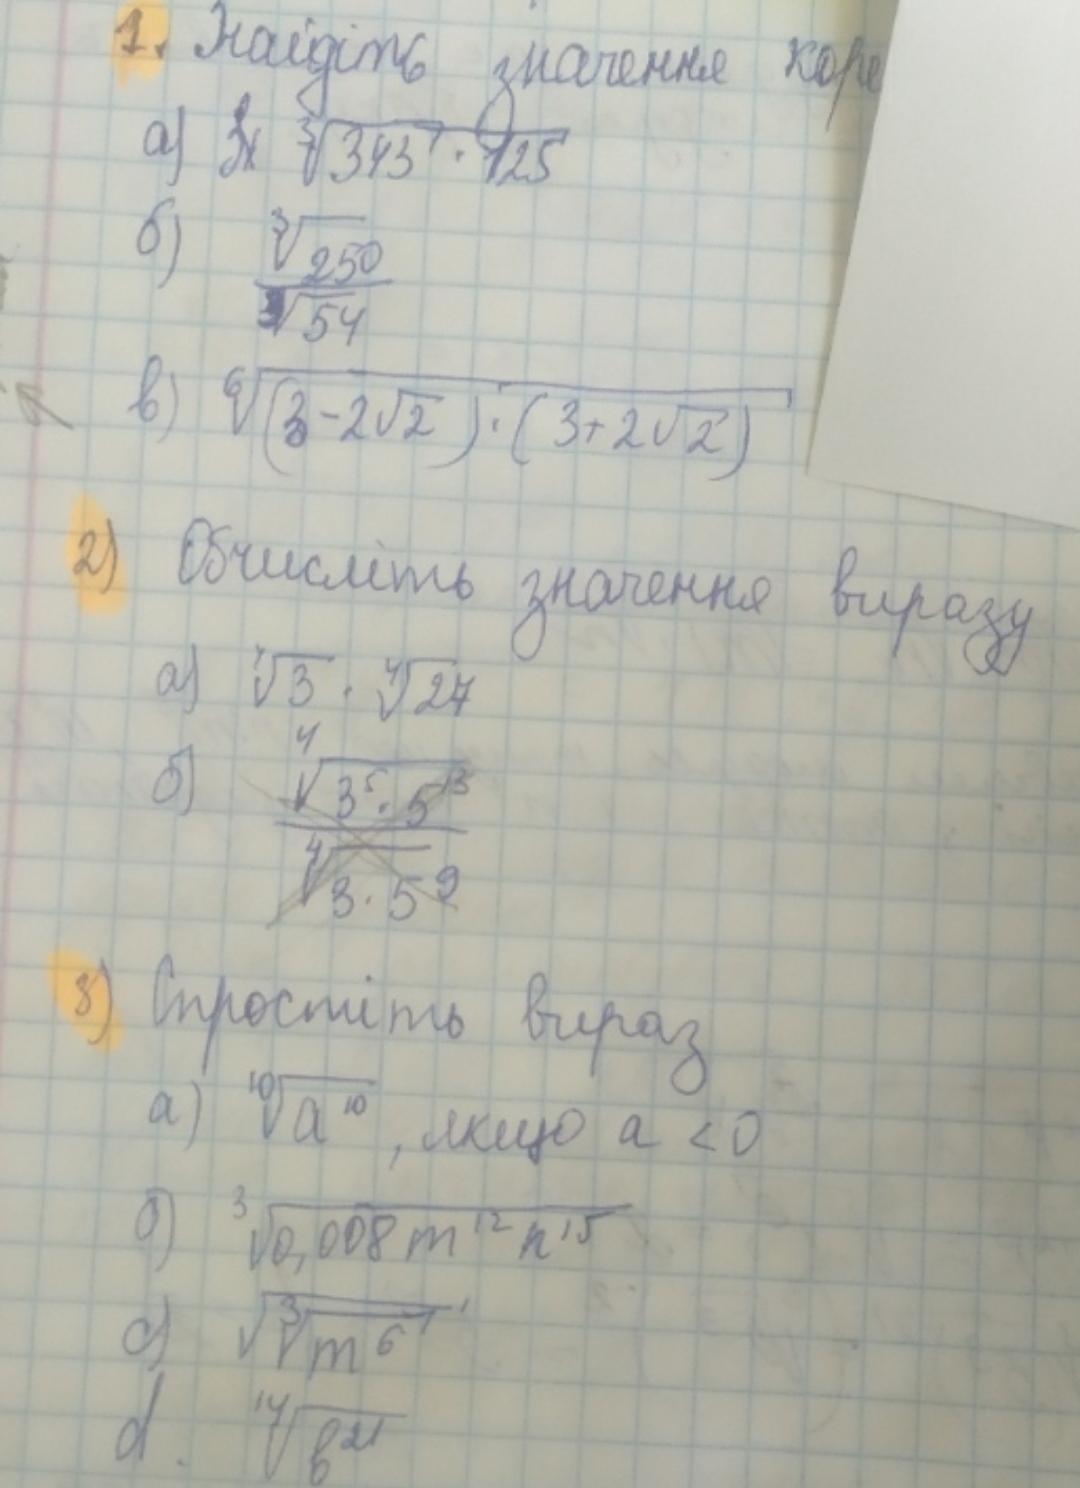 1. Знайдіть значення коре
а) ∛(343 · 125)
б) ∛250 / ∛54
в) ⁶√((3-2√2) · (3+2√2))
2) Обчисліть значення виразу
а) ⁴√3 · ⁴√27
б) ⁴√(3⁵ · 5¹³) / ⁴√(3 · 5⁹)
3) Спростіть вираз
а) ¹⁰√(a¹⁰), якщо a < 0
б) ∛(0,008 m¹² n¹⁵)
c) √(∛(m⁶))
d. ¹⁴√(b²¹)